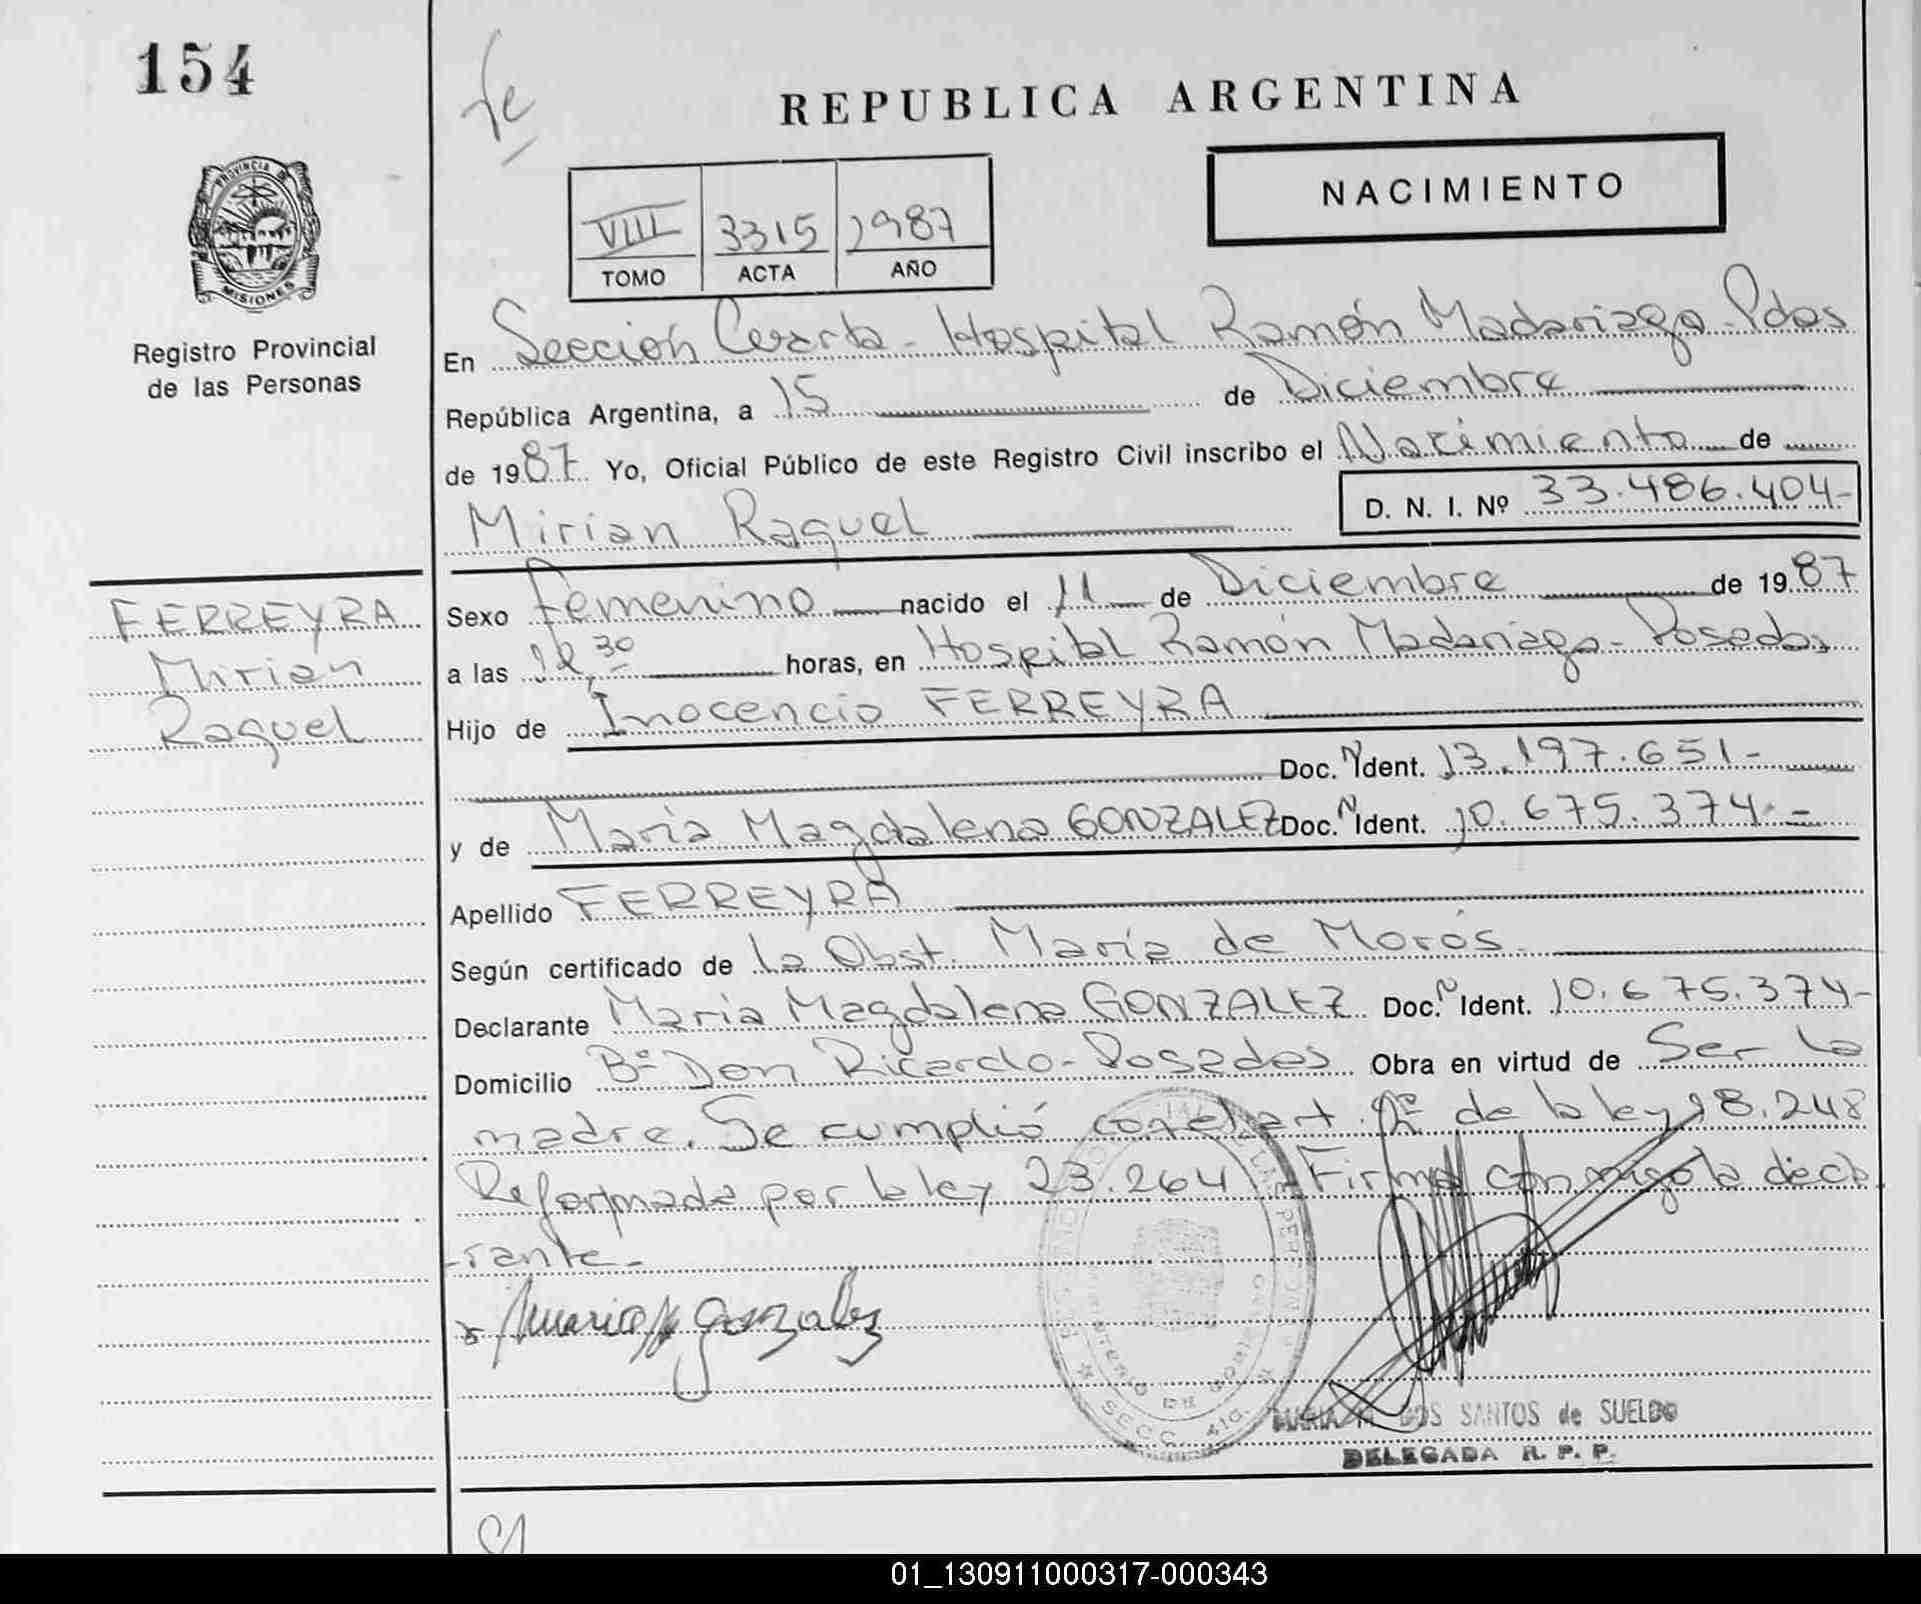 154
fe
REPUBLICA ARGENTINA
NACIMIENTO
VIII 3315 1987
TOMO ACTA AÑO
PROVINCIA DE
MISIONES
Registro Provincial
de las Personas
En Sección Cuarta - Hospital Ramón Madariaga - Pdas
República Argentina, a 15 de Diciembre
de 1987 Yo, Oficial Público de este Registro Civil inscribo el Nacimiento de
Mirian Raquel D. N. I. Nº 33.486.404-
FERREYRA
Mirian
Raquel
Sexo Femenino nacido el 11 de Diciembre de 1987
a las 30 horas, en Hospital Ramón Madariaga - Posadas
Hijo de Inocencio FERREYRA
Doc. N Ident. 13.197.651-
y de María Magdalena GONZALEZ Doc. N Ident. 10.675.374.-
Apellido FERREYRA
Según certificado de la Obst. María de Morós.
Declarante María Magdalena GONZALEZ Doc. N Ident. 10.675.374-
Domicilio Bº Don Ricardo - Posadas Obra en virtud de Ser la
madre. Se cumplió con el art. de la ley 18.248
Reformada por la ley 23.264 - Firma conmigo la decla
-rante-
Maria M Gonzalez
SECC. 4ta.
MARIA DOS SANTOS de SUELDO
DELEGADA R. P. P.
01_130911000317-000343